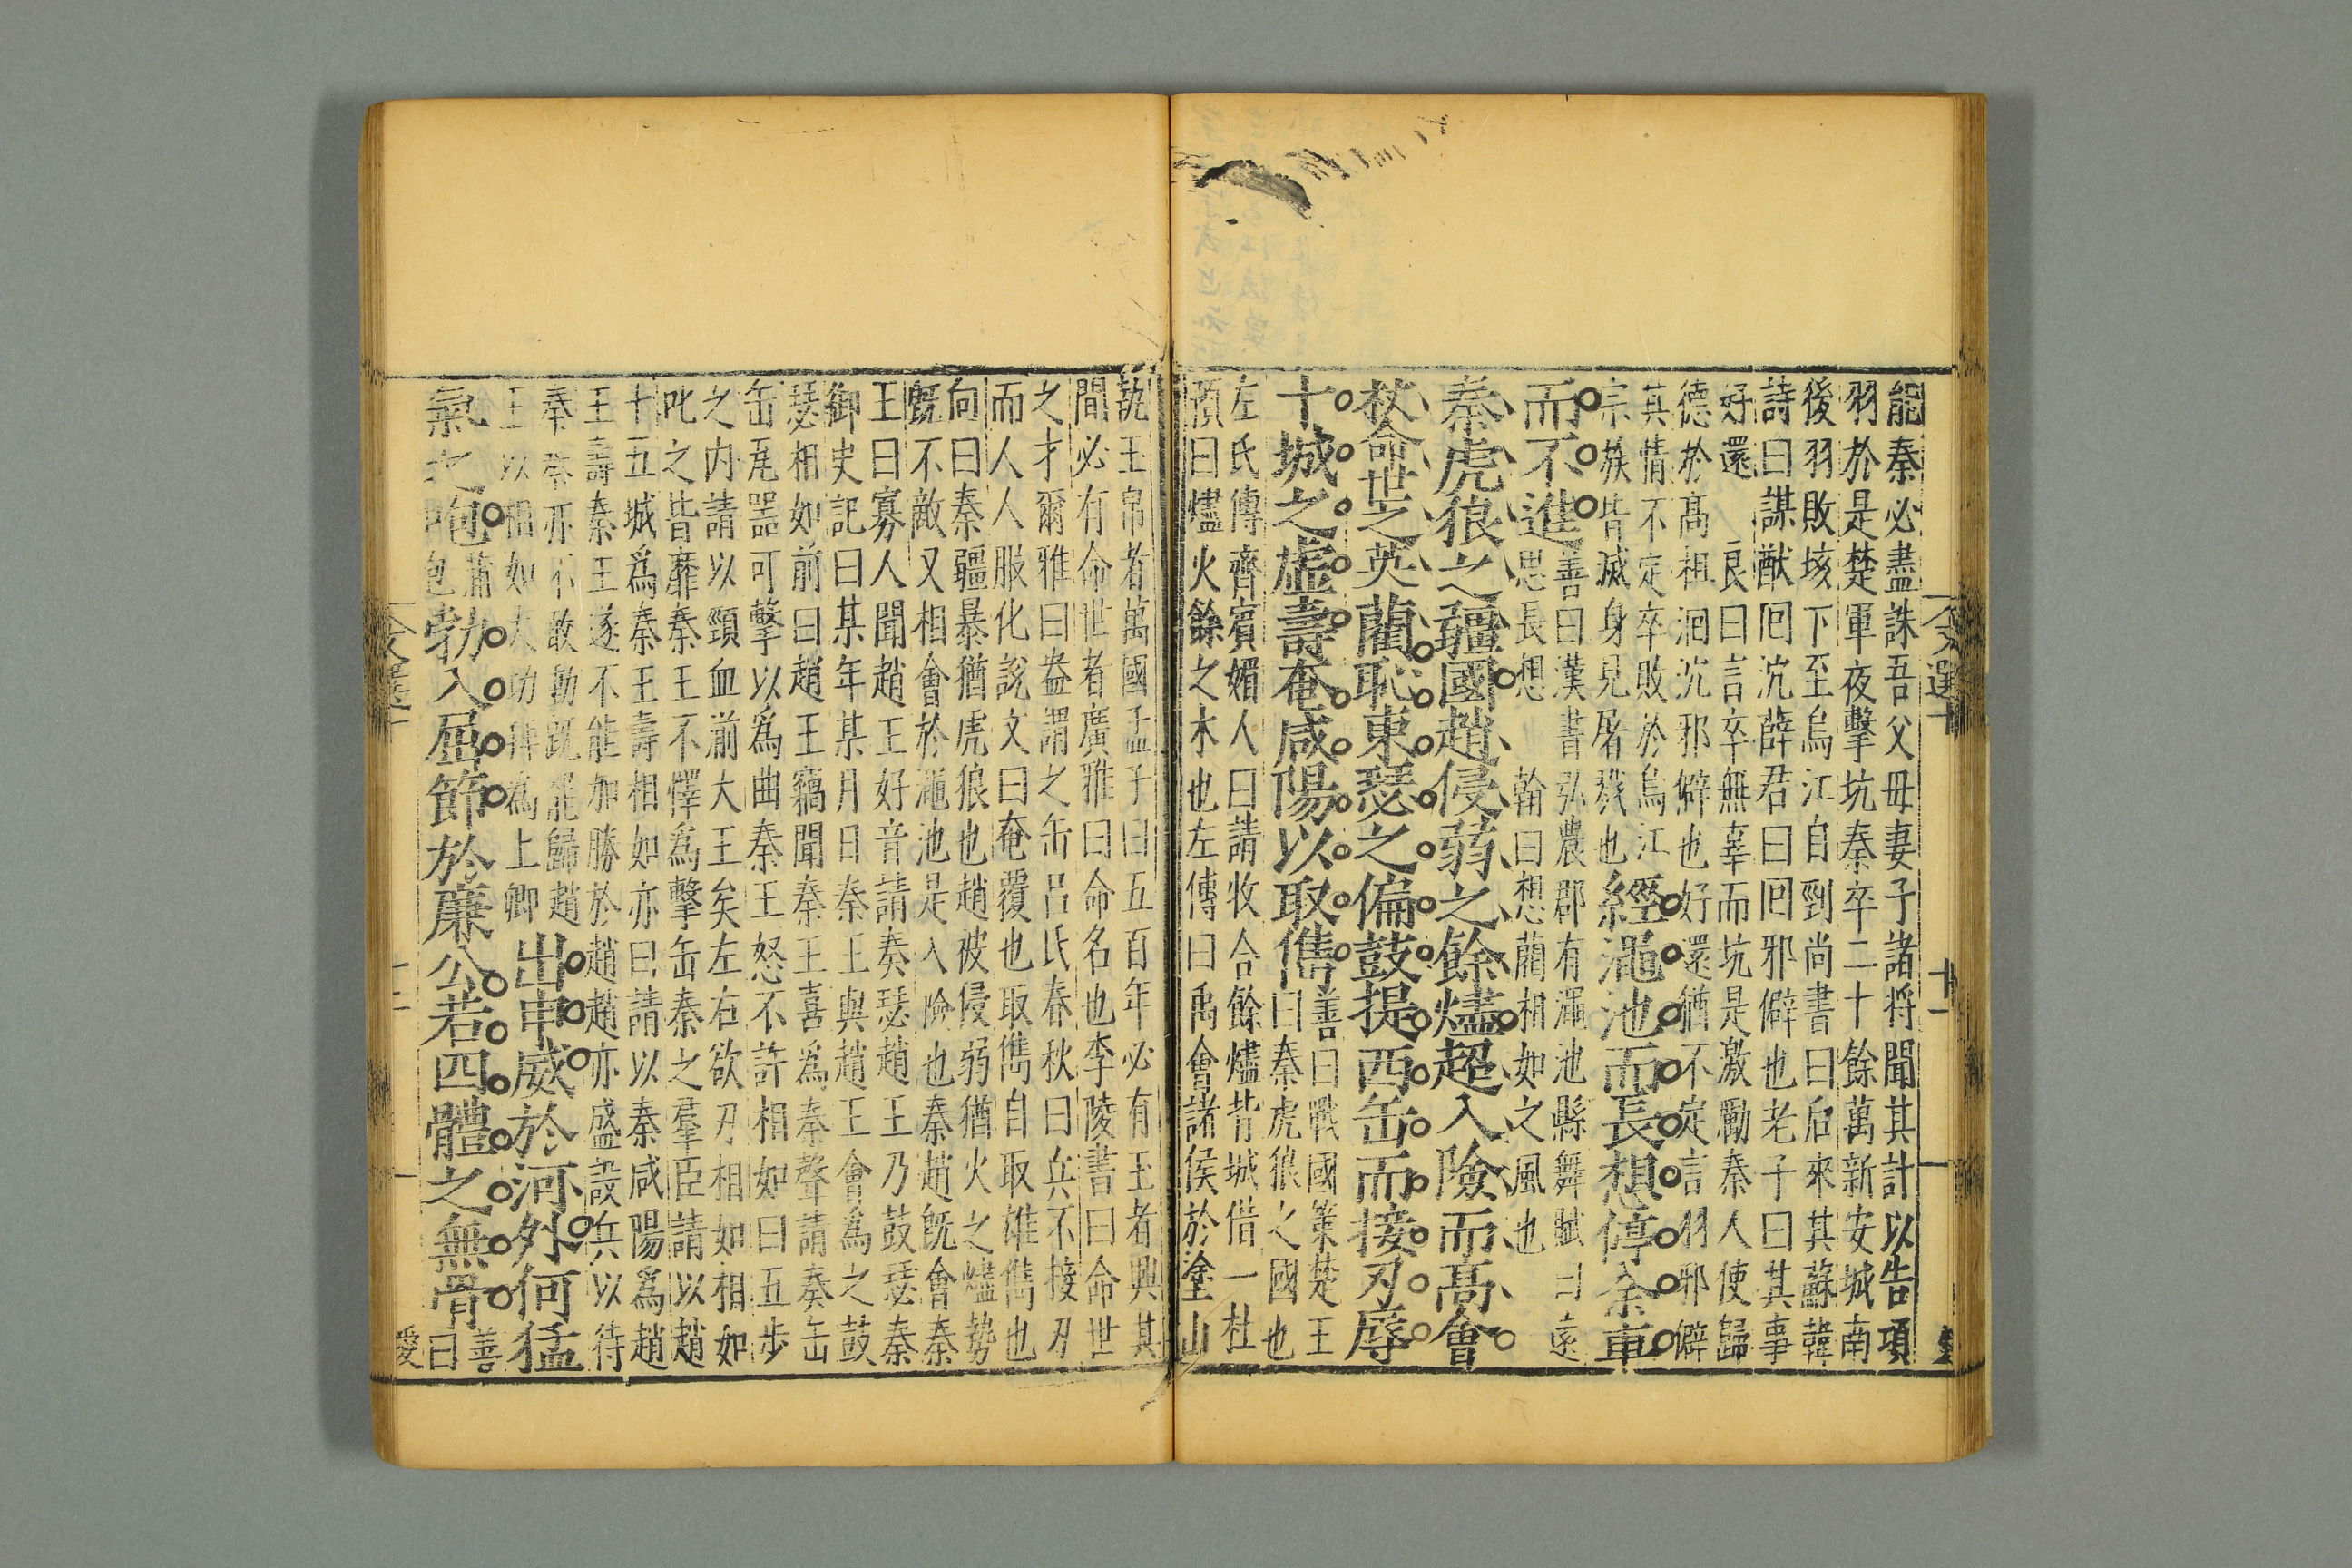 能秦必盡誅吾父母妻子諸将聞其計以告項
羽於是楚軍夜擊坑秦卒二十餘萬新安城南
後羽敗垓下至烏江自剄尚書曰后來其蘇韓
詩曰謀猷囘沇薛君曰囘邪僻也老子曰其事
好還良曰言卒無辜而坑是激勵秦人使歸
德於髙祖洄沇邪僻也好還猶不定言羽邪僻
其情不定卒敗於烏江
宗族皆滅身見屠戮也
經澠池而長想停余車
而不進
善曰漢書弘農郡有澠池縣舞賦曰遠
思長想翰曰想藺相如之風也
秦虎狼之疆國趙侵弱之餘燼超入險而髙會
杖命世之英藺恥東瑟之偏鼓提西缶而接刃辱
十城之虛壽奄咸陽以取儁
善曰戰國策楚王
曰秦虎狼之國也
左氏傳齊賓媚人曰請收合餘燼背城借一杜
預曰燼火餘之木也左傳曰禹會諸侯於塗山
執玉帛者萬國孟子曰五百年必有王者興其
間必有命世者廣雅曰命名也李陵書曰命世
之才爾雅曰盎謂之缶呂氏春秋曰兵不接刃
而人人服化說文曰奄覆也取儁自取雄儁也
向曰秦疆暴猶虎狼也趙被侵弱猶火之燼勢
旣不敵又相會於澠池是入險也秦趙旣會秦
王曰寡人聞趙王好音請奏瑟趙王乃鼓瑟秦
御史記曰某年某月日秦王與趙王會爲之鼓
瑟相如前曰趙王竊聞秦王喜爲秦聲請奏缶
缶尾器可擊以爲曲秦王怒不許相如曰五步
之内請以頸血前大王矣左右欲刃相如相如
叱之皆靡秦王不懌爲擊缶秦之羣臣請以趙
十五城爲秦王壽相如亦曰請以秦咸陽爲趙
王壽秦王遂不能加勝於趙趙亦盛設兵以待
秦秦亦不敢動旣罷歸趙
王以相如大功拜爲上卿
出申威於河外何猛
氣之咆
蒲
包
勃入屈節於廉公若四體之無骨
善
曰
爰
文選十
十一
文選十
十二